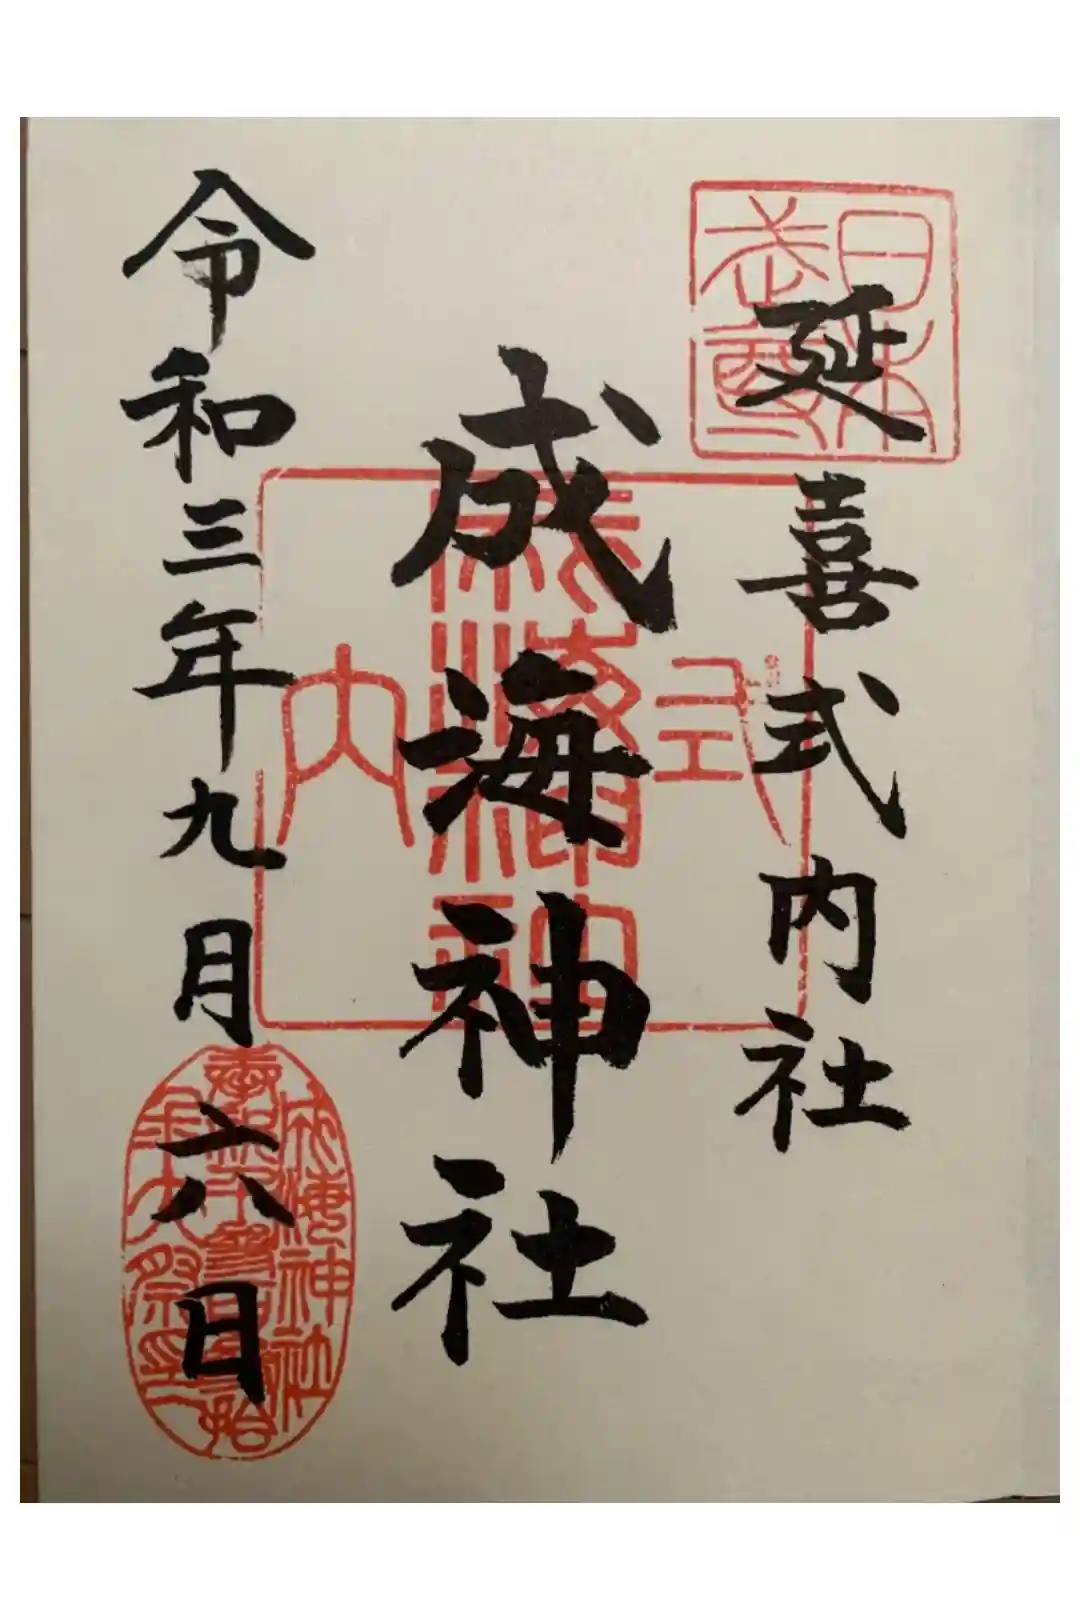 延喜式内社
成海神社
令和三年九月六日
日本武尊
式
内
成海神社